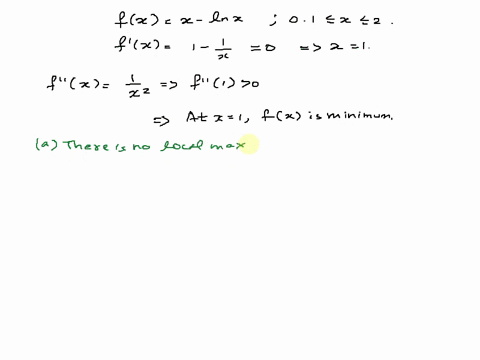 f(x) = x - ln x ; 0.1 ≤ x ≤ 2.
f'(x) = 1 - 1/x = 0 => x = 1.
f''(x) = 1/x² => f''(1) > 0
=> At x = 1, f(x) is minimum.
(a) There is no local max